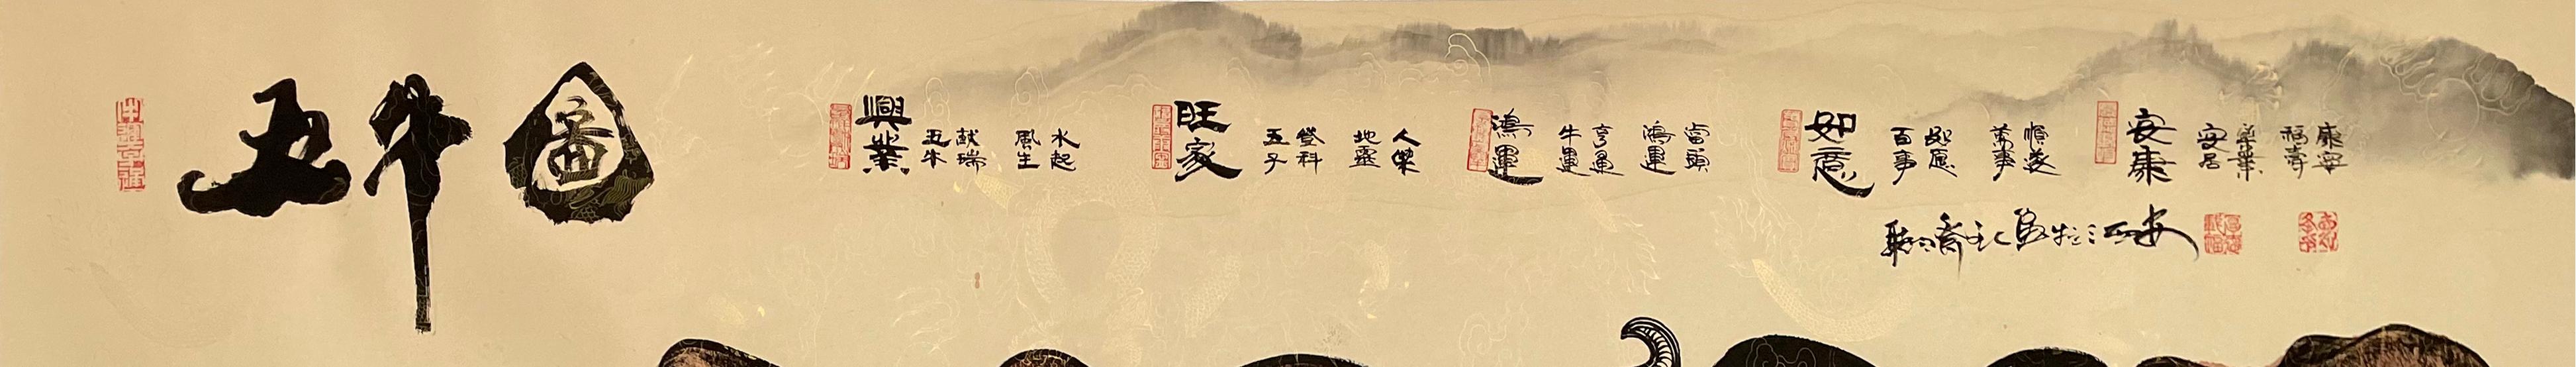 牛運亨通
五牛圖
興業
五牛献瑞
風生水起
旺家
五子登科
地靈人傑
鴻運
牛運亨通
鴻運當頭
如意
百事如愿
萬事順遂
安康
安居樂業
福壽康寧